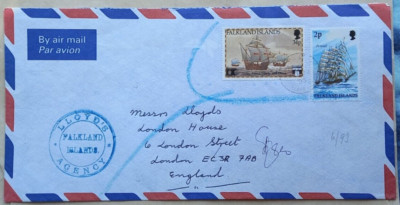 By air mail
Par avion
FALKLAND ISLANDS
2p
FALKLAND ISLANDS
LLOYD'S
FALKLAND
ISLANDS.
AGENCY
Messrs Lloyds
London House
6 London Street
London EC3R 7AB
England